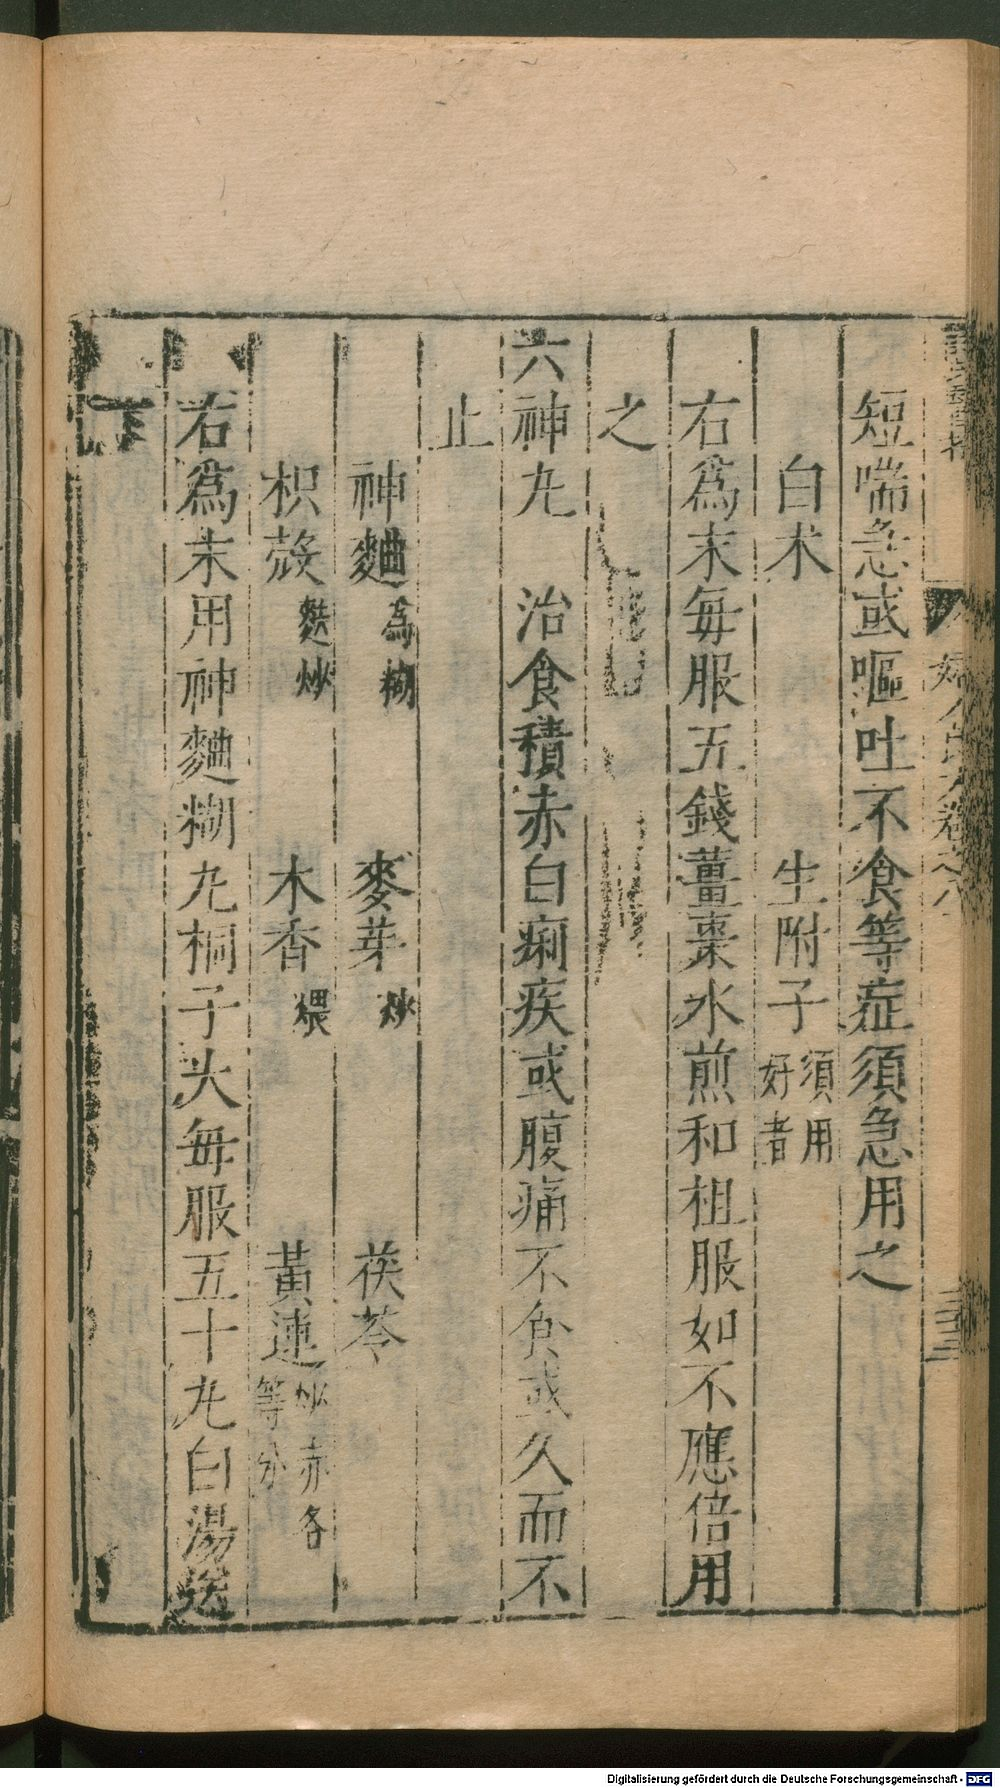 短喘急或嘔吐不食等症須急用之
白朮 生附子須用好者
右爲末每服五錢薑棗水煎和柤服如不應倍用
之
六神丸 治食積赤白痢疾或腹痛不食或久而不
止
神麯為糊 麥芽炒 茯苓
枳殼麩炒 木香煨 黃連炒赤各等分
右爲末用神麯糊丸桐子大每服五十丸白湯送
下
婦人良方卷之八
三十三
Digitalisierung gefördert durch die Deutsche Forschungsgemeinschaft - DFG